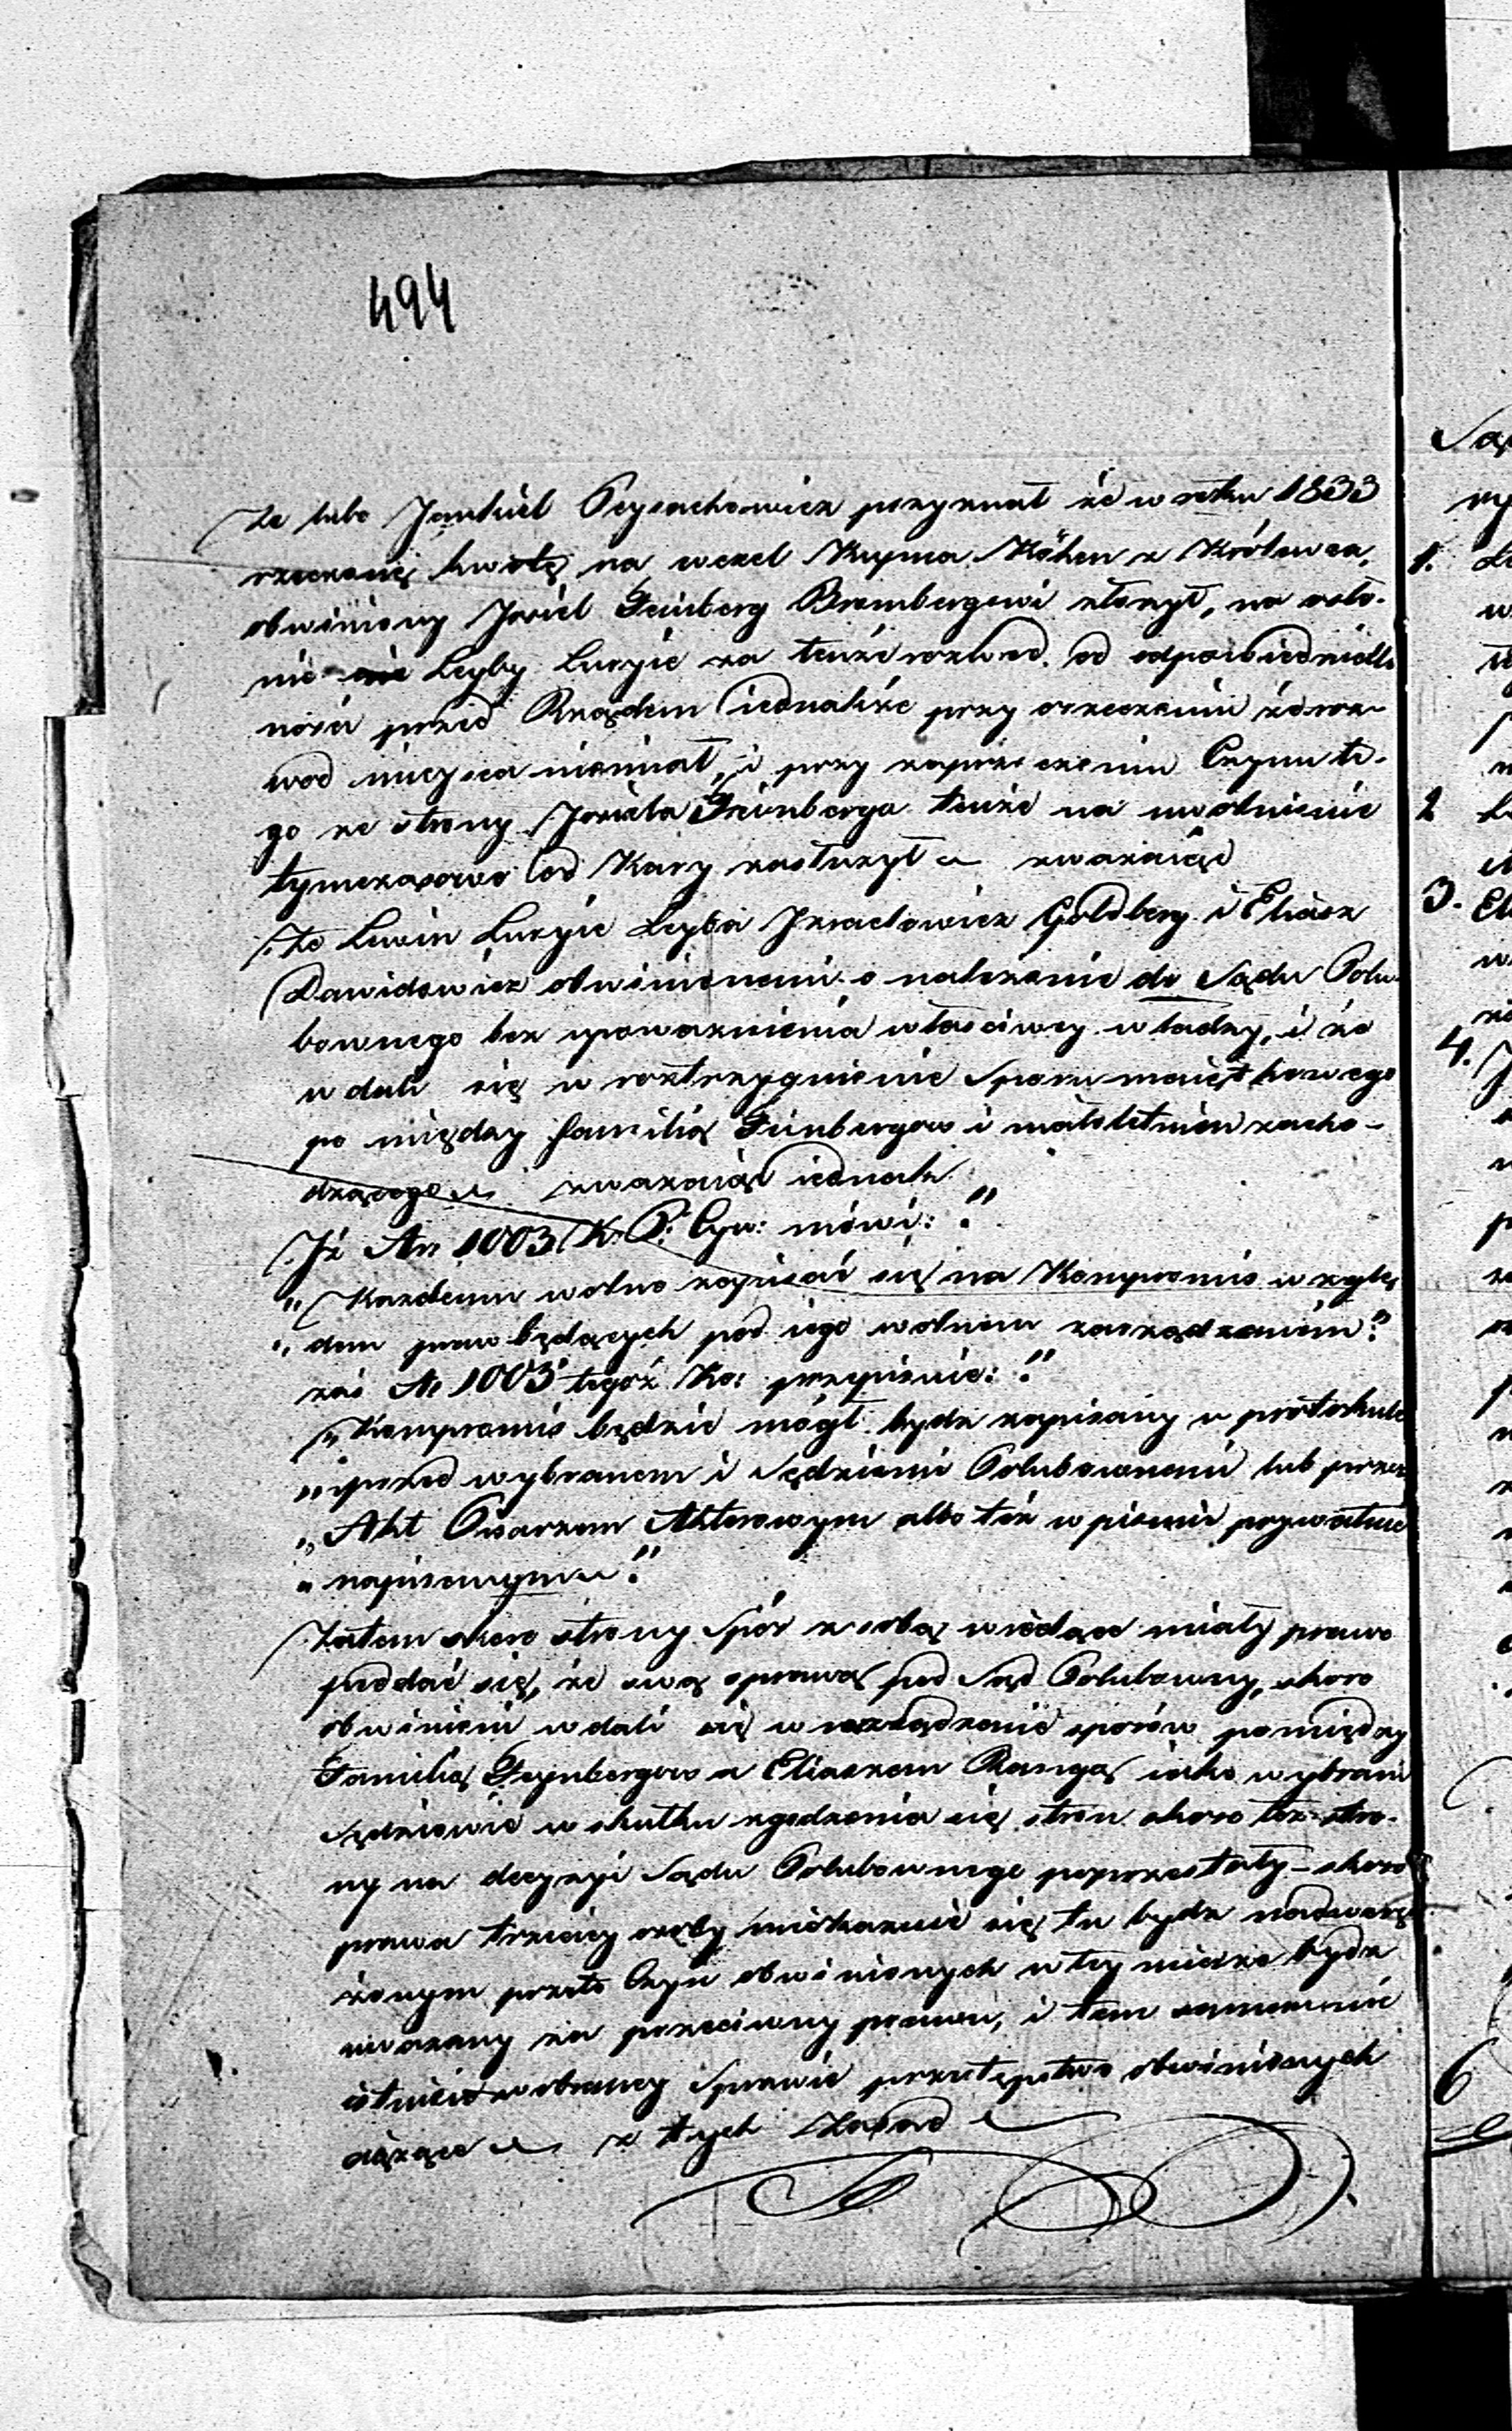 494
Że lubo Jankiel Peysachowicz przyznał że w roku 1833
rzeczoną kwotę na wexel Kupna Köhen z Królewca,
obwiniony Josiel Feinberg Brombergowi złożył, na osło-
nie Leyby Luryie za tenże rozwod. od odpowiedniedl
ności przed Rządem iednakże przy orzeczeniu że roz-
wod mieysca niemiał, i przy zaprzeczeniu Czynu te-
go ze strony Josiela Feinberga tenże na uwolnienie
tymczasowo od Kary zasłużył zważaiąc
Że Lewin Luryie Leyba Izraelowicz Goldberg i Eliasz
Dawidowicz obwinieni o należenie do Sądu Polu-
bownego bez upoważnienia właściwey władzy, i że
w dali się w roztrzygnienie Sporu maiątkowego
po między familią Feinbergow i małoletnim zacho-
dzącego zważaiąc iednak
Iż Ar 1003 K. P. Cyw: mówi: "
" Każdemu wolno zapisać się na Kompromis wzglę
" dem praw będących pod iego wolnem zarządzaniem"
zaś Ar 1005 tegoż Ko: przepisuie: "
" Kompromis będzie mógł bydz zapisany w protokule
" przed wybranemi Sędziami Polubownemi lub przez
" Akt Aktorowym albo też w pismie prywatnie
" napisanym"
Zatem skoro strony Spór z sobą wiodące miały prawo
poddać się, ze swą sprawą pod Sąd Polubowny, skoro
obwinieni wdali się w rozsądzenie sporów pomiędzy
Familią Feynbergow a Eliaszem Rangą iako wybrani
Sędziowie w skutku zgodzenia się stron skoro też stro-
ny na decyzyi Sądu Polubownego poprzestały – skoro
prawa trzeciey osoby nieokazuie się tu bydz nadwerę
żonym przeto Czyn obwinionych w tey mierze bydz
uważany za przeciwny prawu, i tem samem nie
istnieie w obecney Sprawie przestępstwo obwinionych
ciążące z tych Zasad